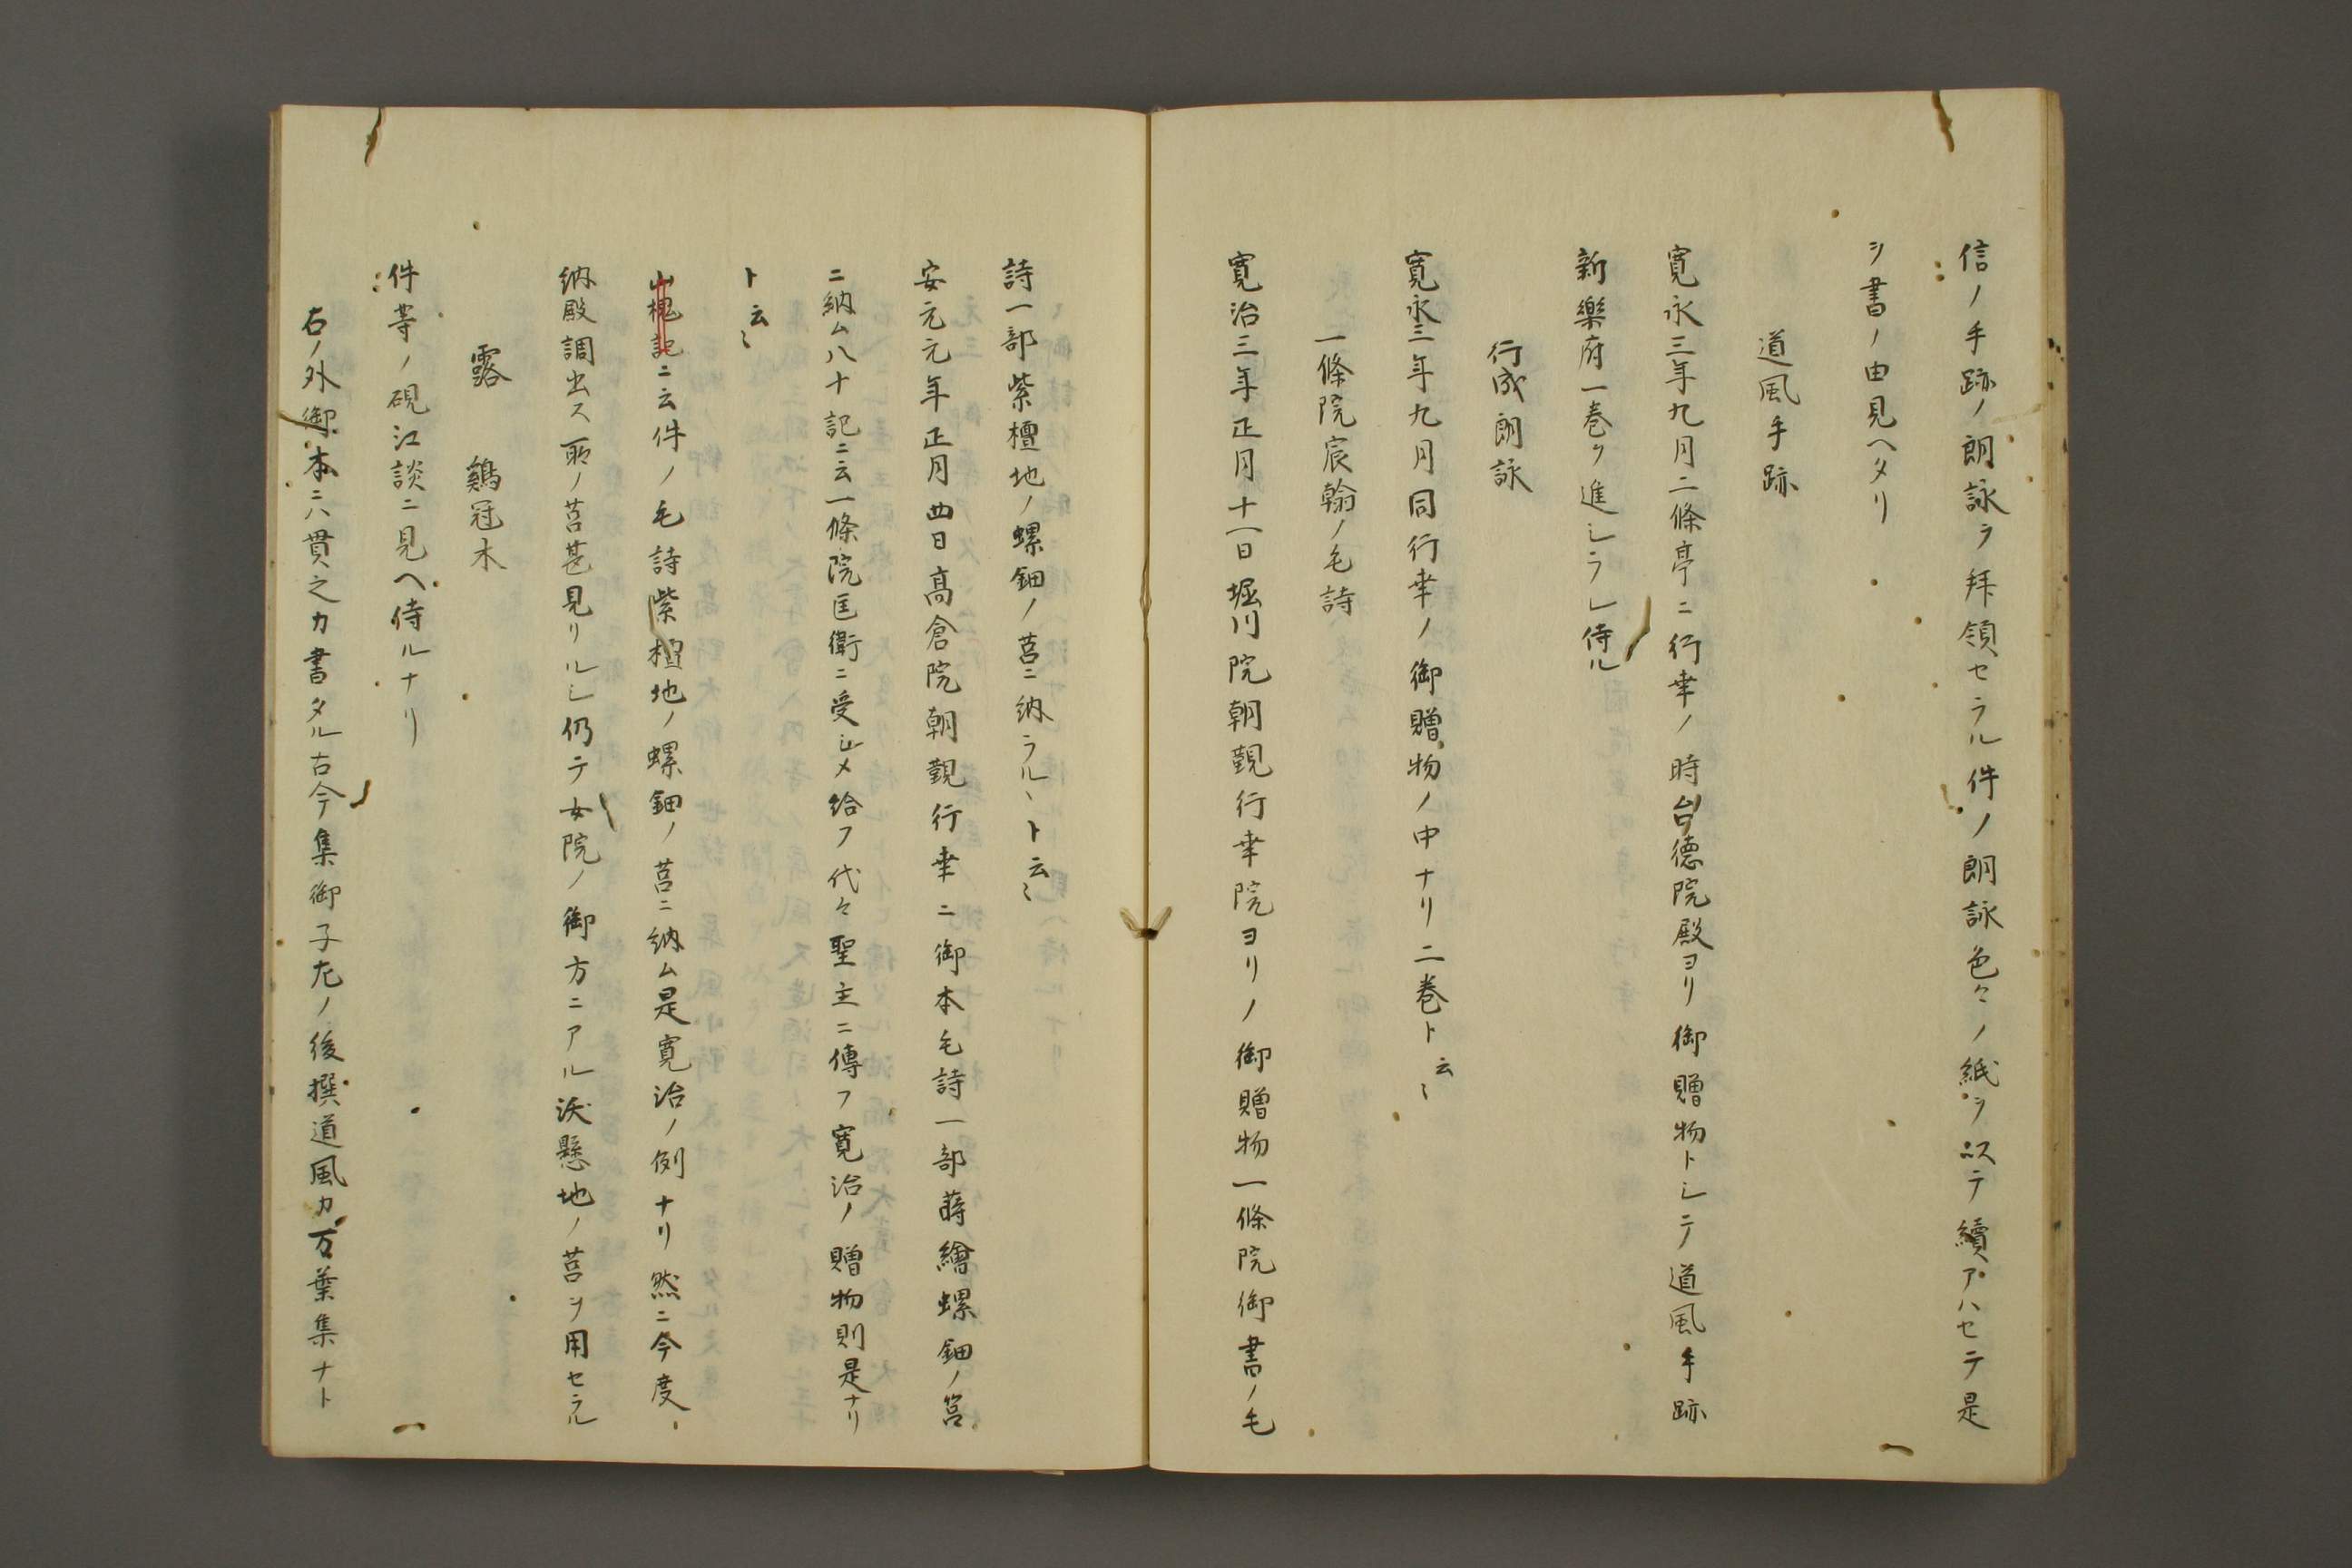 信ノ手跡ノ朗詠ヲ拝領セラル件ノ朗詠色々ノ紙ヲ以テ續アハセテ是
ヲ書ノ由見ヘタリ
道風手跡
寛永三年九月二條亭ニ行幸ノ時台徳院殿ヨリ御贈物トシテ道風手跡
新樂府一巻ヲ進シラレ侍ル
行成朗詠
寛永三年九月同行幸ノ御贈物ノ中ナリ二巻ト云〻
一條院宸翰ノ毛詩
寛治三年正月十一日堀川院朝覲行幸院ヨリノ御贈物一條院御書ノ毛
詩一部紫檀地ノ螺鈿ノ筥ニ納ラルヽト云〻
安元元年正月四日高倉院朝覲行幸ニ御本毛詩一部蒔繪螺鈿ノ筥
ニ納ム八十記ニ云一條院匡衡ニ受シメ給フ代々聖主ニ傳フ寛治ノ贈物則是ナリ
ト云〻
山槐記ニ云件ノ毛詩紫檀地ノ螺鈿ノ筥ニ納ム是寛治ノ例ナリ然ニ今度
納殿調出ス所ノ筥甚見リルシ仍テ女院ノ御方ニアル沃懸地ノ筥ヲ用セラル
露　鶏冠木
件等ノ硯江談ニ見ヘ侍ルナリ
右ノ外御本ニハ貫之カ書タル古今集御子左ノ後撰道風カ万葉集ナト